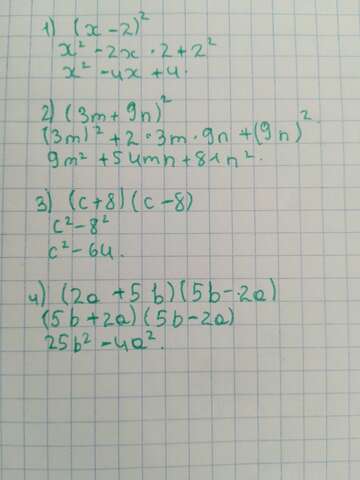 1) (x - 2)²
x² - 2x · 2 + 2²
x² - 4x + 4.
2) (3m + 9n)²
(3m)² + 2 · 3m · 9n + (9n)²
9m² + 54mn + 81n².
3) (c + 8) (c - 8)
c² - 8²
c² - 64.
4) (2a + 5b) (5b - 2a)
(5b + 2a) (5b - 2a)
25b² - 4a².